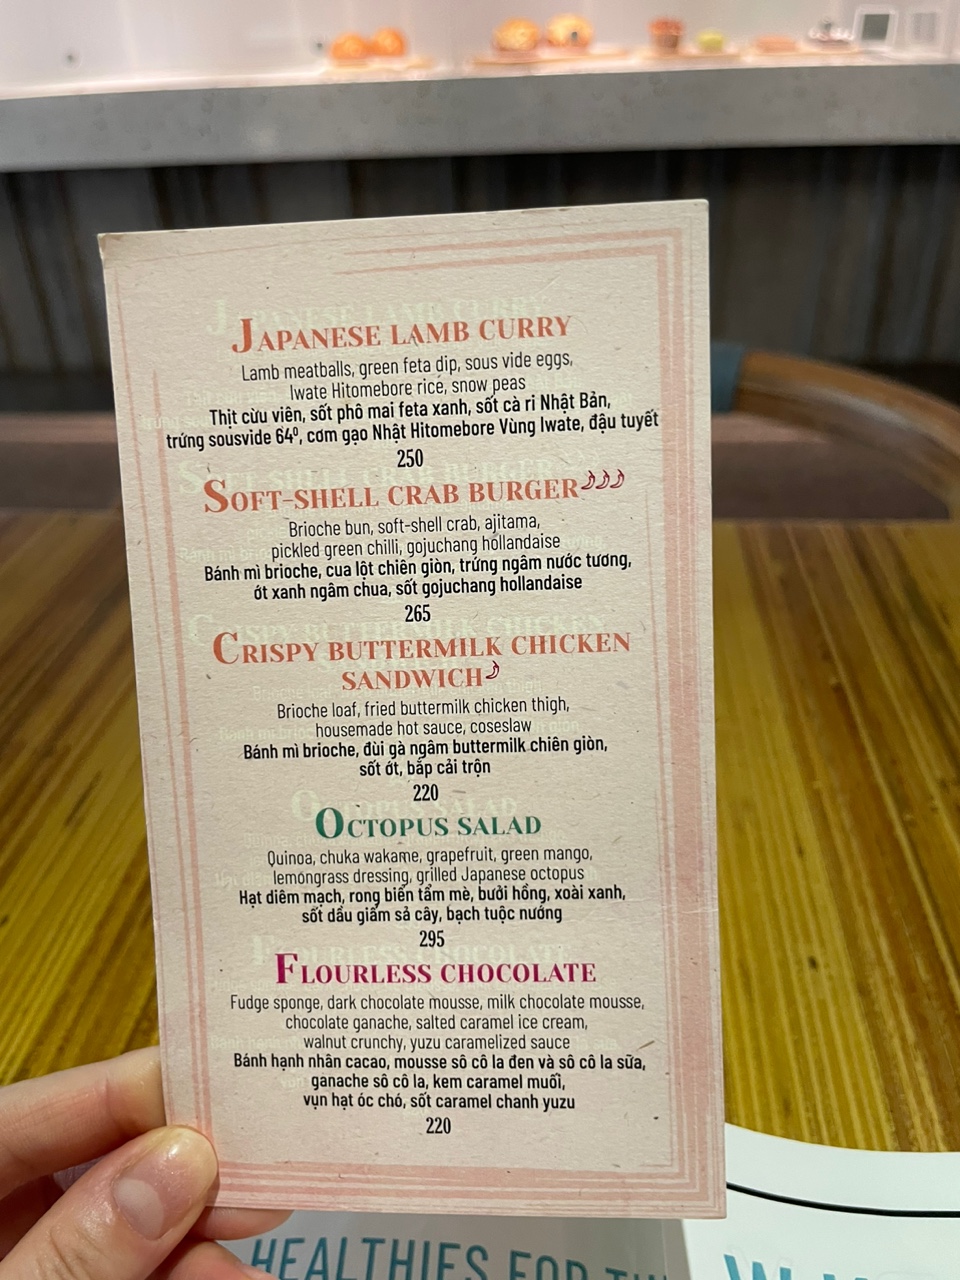 JAPANESE LAMB CURRY
Lamb meatballs, green feta dip, sous vide eggs,
Iwate Hitomebore rice, snow peas
Thịt cừu viên, sốt phô mai feta xanh, sốt cà ri Nhật Bản,
trứng sousvide 64⁰, cơm gạo Nhật Hitomebore Vùng Iwate, đậu tuyết
250
SOFT-SHELL CRAB BURGER
Brioche bun, soft-shell crab, ajitama,
pickled green chilli, gojuchang hollandaise
Bánh mì brioche, cua lột chiên giòn, trứng ngâm nước tương,
ớt xanh ngâm chua, sốt gojuchang hollandaise
265
CRISPY BUTTERMILK CHICKEN
SANDWICH
Brioche loaf, fried buttermilk chicken thigh,
housemade hot sauce, coseslaw
Bánh mì brioche, đùi gà ngâm buttermilk chiên giòn,
sốt ớt, bắp cải trộn
220
OCTOPUS SALAD
Quinoa, chuka wakame, grapefruit, green mango,
lemongrass dressing, grilled Japanese octopus
Hạt diêm mạch, rong biển tẩm mè, bưởi hồng, xoài xanh,
sốt dầu giấm sả cây, bạch tuộc nướng
295
FLOURLESS CHOCOLATE
Fudge sponge, dark chocolate mousse, milk chocolate mousse,
chocolate ganache, salted caramel ice cream,
walnut crunchy, yuzu caramelized sauce
Bánh hạnh nhân cacao, mousse sô cô la đen và sô cô la sữa,
ganache sô cô la, kem caramel muối,
vụn hạt óc chó, sốt caramel chanh yuzu
220
HEALTHIES FOR